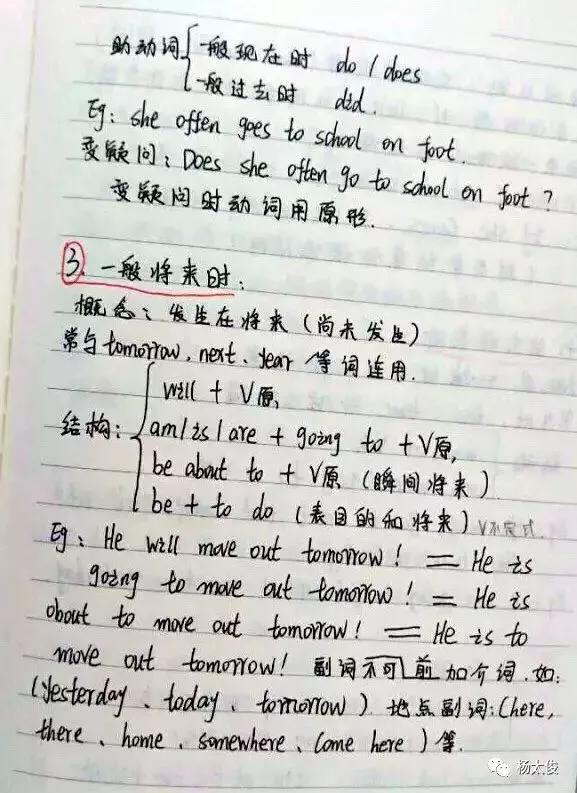 助动词{一般现在时 do / does
一般过去时 did.
Eg: she offen goes to school on foot.
变疑问: Does she often go to school on foot ?
变疑问时动词用原形.
3. 一般将来时:
概念: 发生在将来 (尚未发生)
常与tomorrow、next、year 等词连用.
will + V原,
结构: am/is/are + going to + V原,
be about to + V原 (瞬间将来)
be + to do (表目的和将来) V不定式.
Eg: He will move out tomorrow! = He is
going to move out tomorrow! = He is
about to move out tomorrow! = He is to
move out tomorrow! 副词不可前加介词. 如:
(Yesterday、today、tomorrow) 地点副词: (here,
there、home、somewhere、Come here) 等.
杨太俊